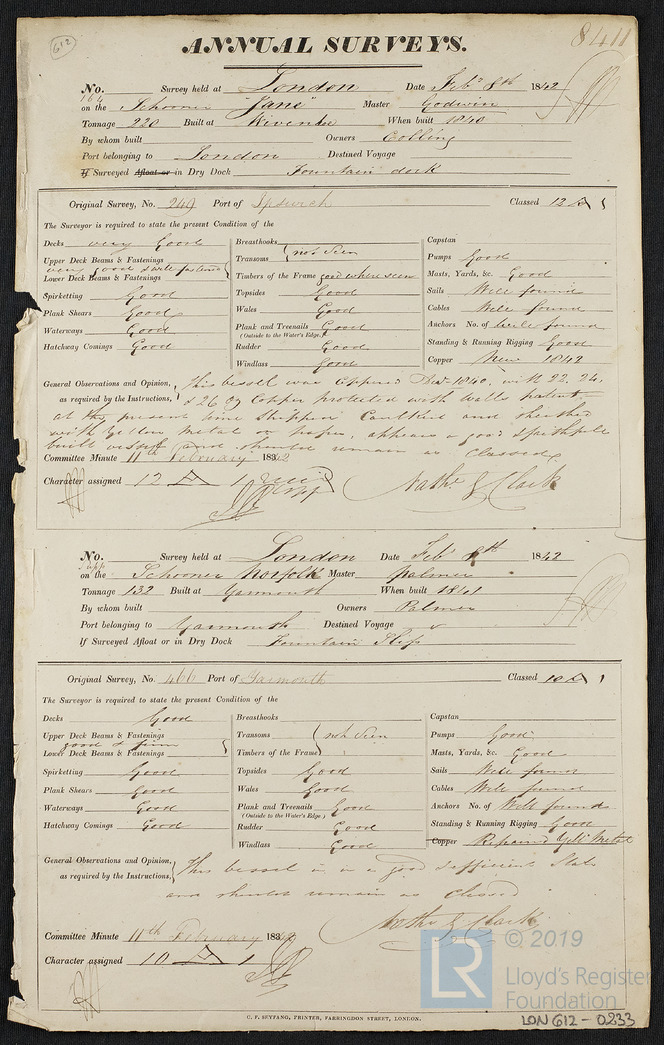 612
8411
ANNUAL SURVEYS.
No. 164 Survey held at London Date Feby 8th 1842
on the Schooner "Jane" Master Godwin
Tonnage 220 Built at Wivenhoe When built 1840
By whom built Owners Colling
Port belonging to London Destined Voyage
If Surveyed Afloat or in Dry Dock Fountain dock
Original Survey, No. 249 Port of Ipswich Classed 12 A 1
The Surveyor is required to state the present Condition of the
Decks very Good
Upper Deck Beams & Fastenings
very good & well fastened
Lower Deck Beams & Fastenings
Spirketting Good
Plank Shears Good
Waterways Good
Hatchway Comings Good
Breasthooks
Transoms not Seen
Timbers of the Frame good where seen
Topsides Good
Wales Good
Plank and Treenails Good
(Outside to the Water's Edge.)
Rudder Good
Windlass Good
Capstan
Pumps Good
Masts, Yards, &c. Good
Sails Well found
Cables Well found
Anchors No. of Well found
Standing & Running Rigging Good
Copper New 1842
General Observations and Opinion, This vessel was Coppered 1840, with 22. 24,
as required by the Instructions, & 26 oz Copper protected with patent
at the present time Stripped Caulked and sheathed
with yellow metal on paper, appears a good & faithfully
built vessel and should remain as Classed
Committee Minute 11th February 1842
Character assigned 12 A 1
Nathl G Clark
No. Survey held at London Date Feby 8th 1842
on the Schooner Norfolk Master Palmer
Tonnage 132 Built at Yarmouth When built 1841
By whom built Owners Palmer
Port belonging to Yarmouth Destined Voyage
If Surveyed Afloat or in Dry Dock Fountain Slip
Original Survey, No. 466 Port of Yarmouth Classed 10 A 1
The Surveyor is required to state the present Condition of the
Decks Good
Upper Deck Beams & Fastenings
good & firm
Lower Deck Beams & Fastenings
Spirketting Good
Plank Shears Good
Waterways Good
Hatchway Comings Good
Breasthooks
Transoms not Seen
Timbers of the Frame
Topsides Good
Wales Good
Plank and Treenails Good
(Outside to the Water's Edge.)
Rudder Good
Windlass Good
Capstan
Pumps Good
Masts, Yards, &c. Good
Sails Well found
Cables Well found
Anchors No. of Well found
Standing & Running Rigging Good
Copper Repaired Yell Metal
General Observations and Opinion, This vessel is in a good & efficient State
as required by the Instructions,
and should remain as Classed
Nathl G Clark
Committee Minute 11th February 1842
Character assigned 10 A 1
LR © 2019
Lloyd's Register
Foundation
C. F. SEYFANG, PRINTER, FARRINGDON STREET, LONDON.
LON 612 - 0233